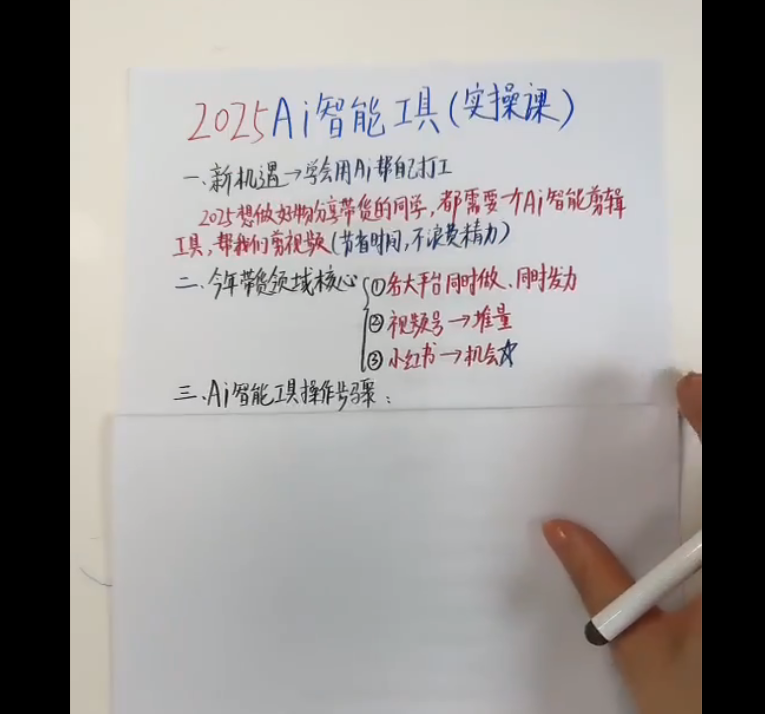 2025Ai智能工具(实操课)
一、新机遇→学会用Ai帮自己打工
2025想做好物分享带货的同学,都需要一个Ai智能剪辑
工具,帮我们剪视频(节省时间,不浪费精力)
二、今年带货领域核心
①各大平台同时做、同时发力
②视频号→堆量
③小红书→机会☆
三、Ai智能工具操作步骤: